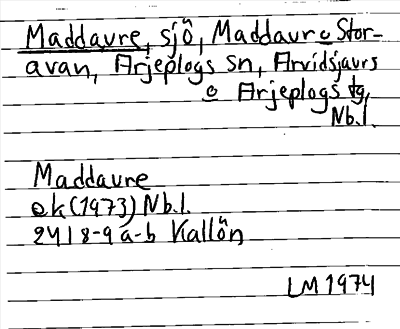 Maddaure, sjö, Maddaur o Stor-
avan, Arjeplogs sn, Arvidsjaurs
o Arjeplogs tg,
Nb.l.
Maddaure
ek (1973) Nb.l.
24I 8-9 a-b Kallön
LM 1974